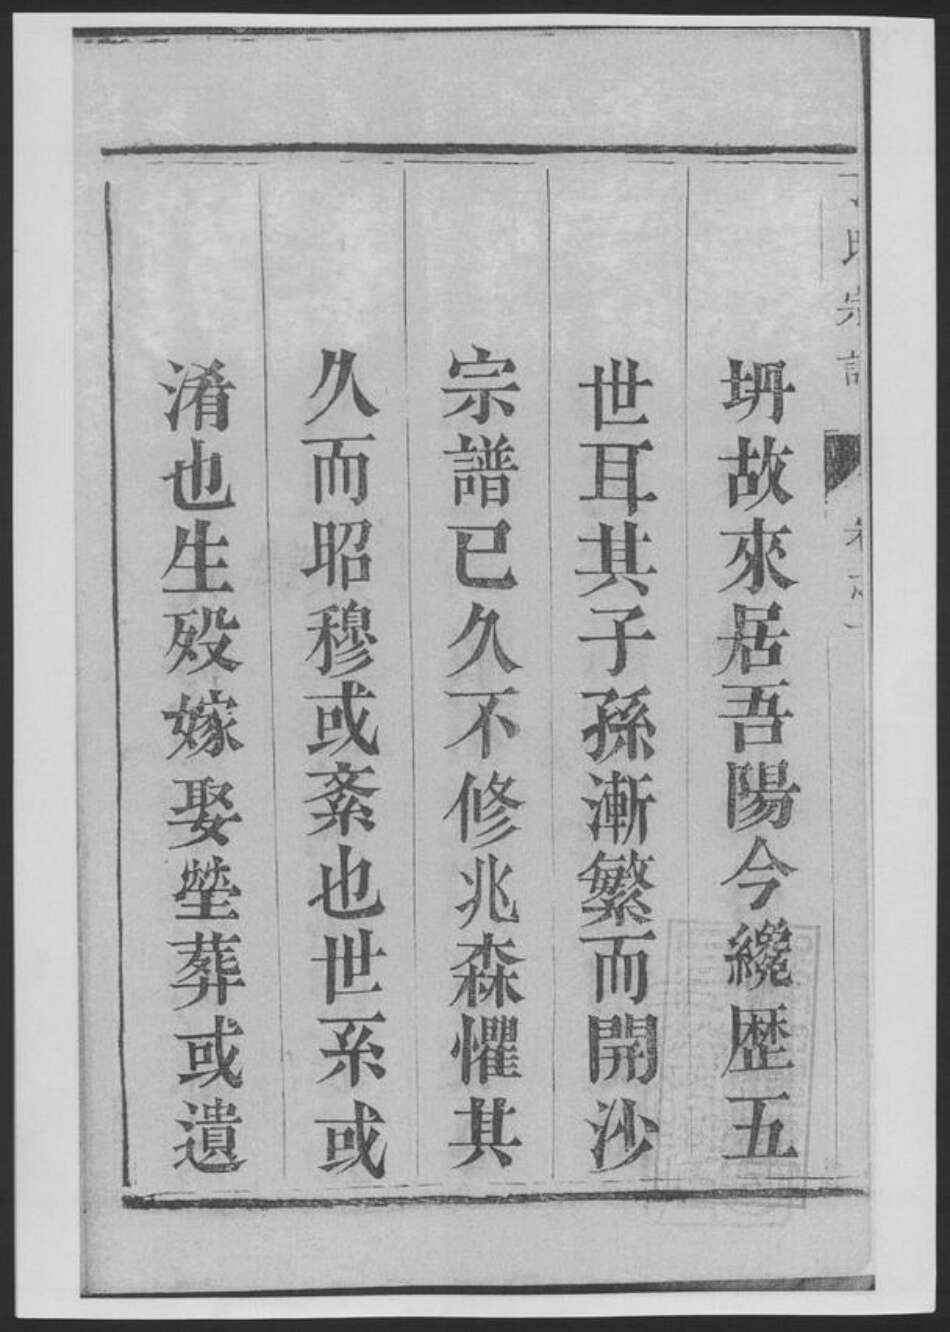 氏宗譜
坍故來居吾陽今纔歷五
世耳其子孫漸繁而開沙
宗譜已久不修兆森懼其
久而昭穆或紊也世系或
淆也生歿嫁娶塋葬或遺